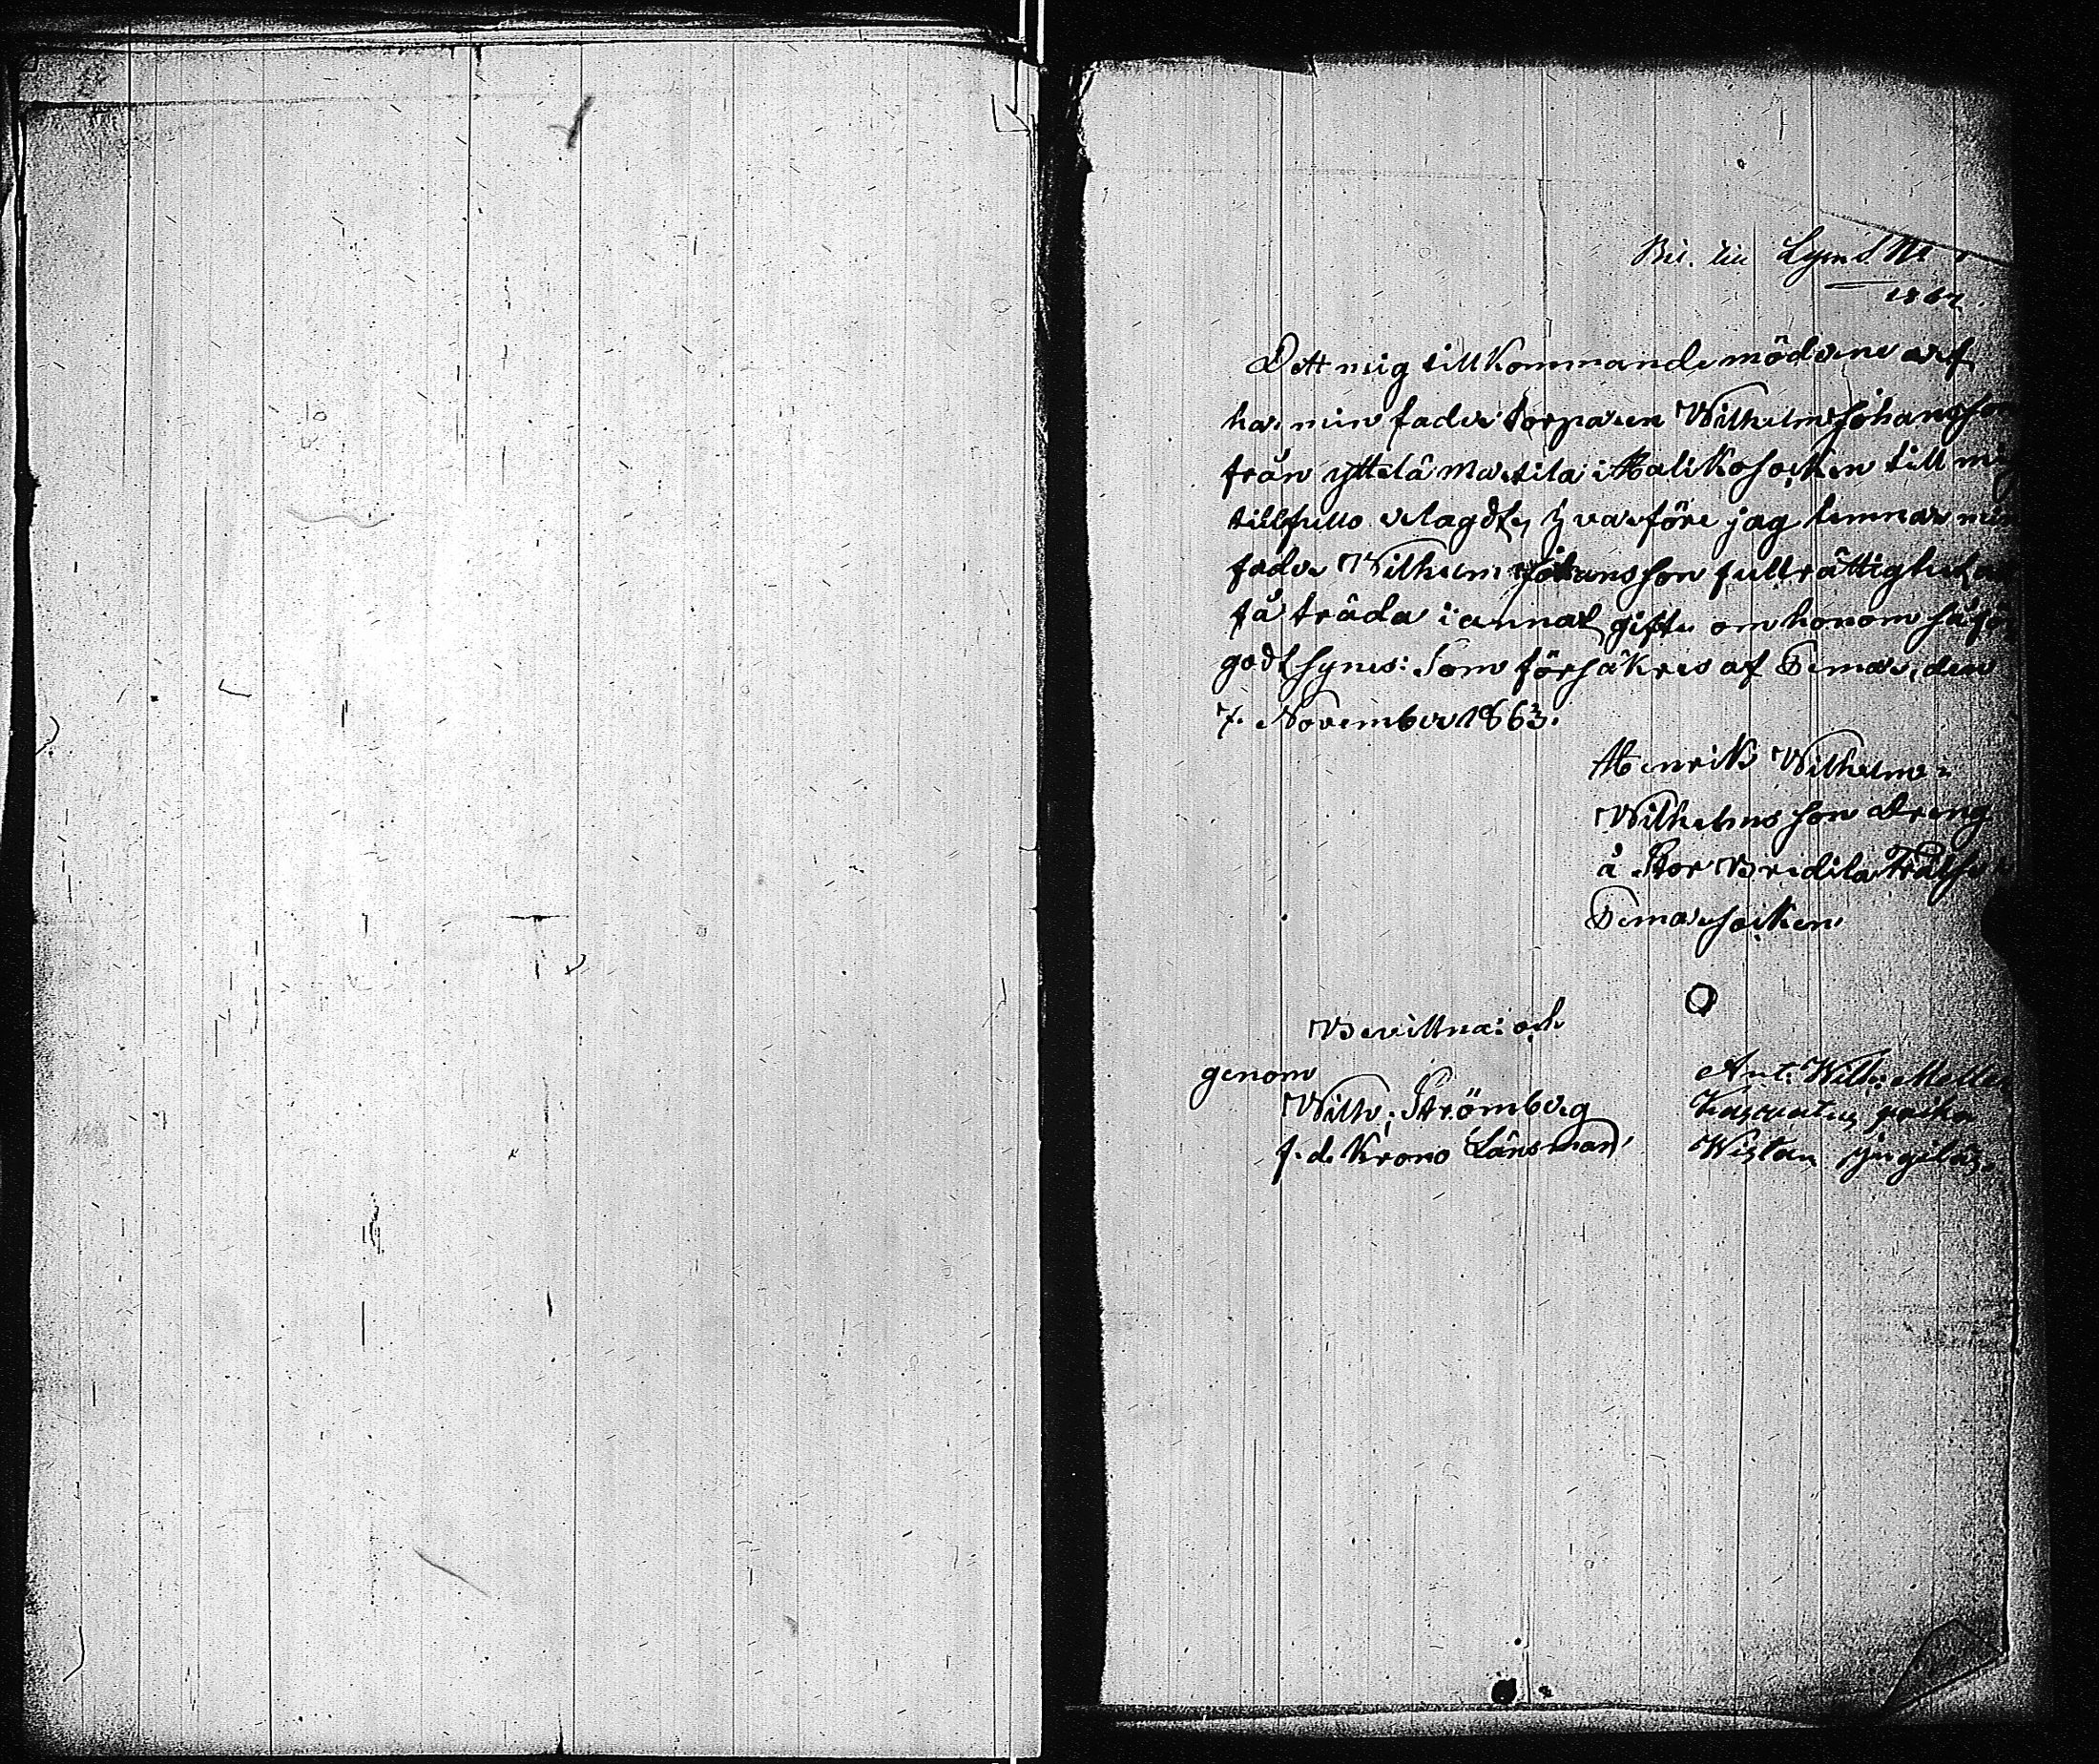 Bil. till Lysn. S. No
1864.
Dett mig tillkommande möderne arf
har min fader torparen Wilhelm Johansson
från yttelä Martila i Haliko socken till mig
tillfullo erlagdt, hvarföre jag lemnar min
fader Wilhelm Johansson full rättighet at
få träda i annat gifte om honom så
godt synes: Som försäkres af Bemar, den
7. November 1863.
Henrik Wilhelm
Wilhelmsson dreng
å Stor Bredila Frälse
Bemar socken
Bevittna: och
genom
Wilh: Strömberg
f. d. Krono Länsman
Ant: Wilh: Melle
poika
Wistan